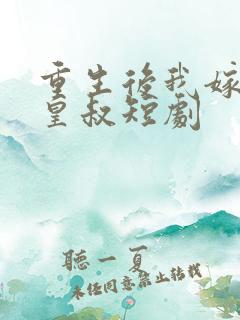 重生後我嫁
皇叔短劇
聽一夏
未经同意禁止转载